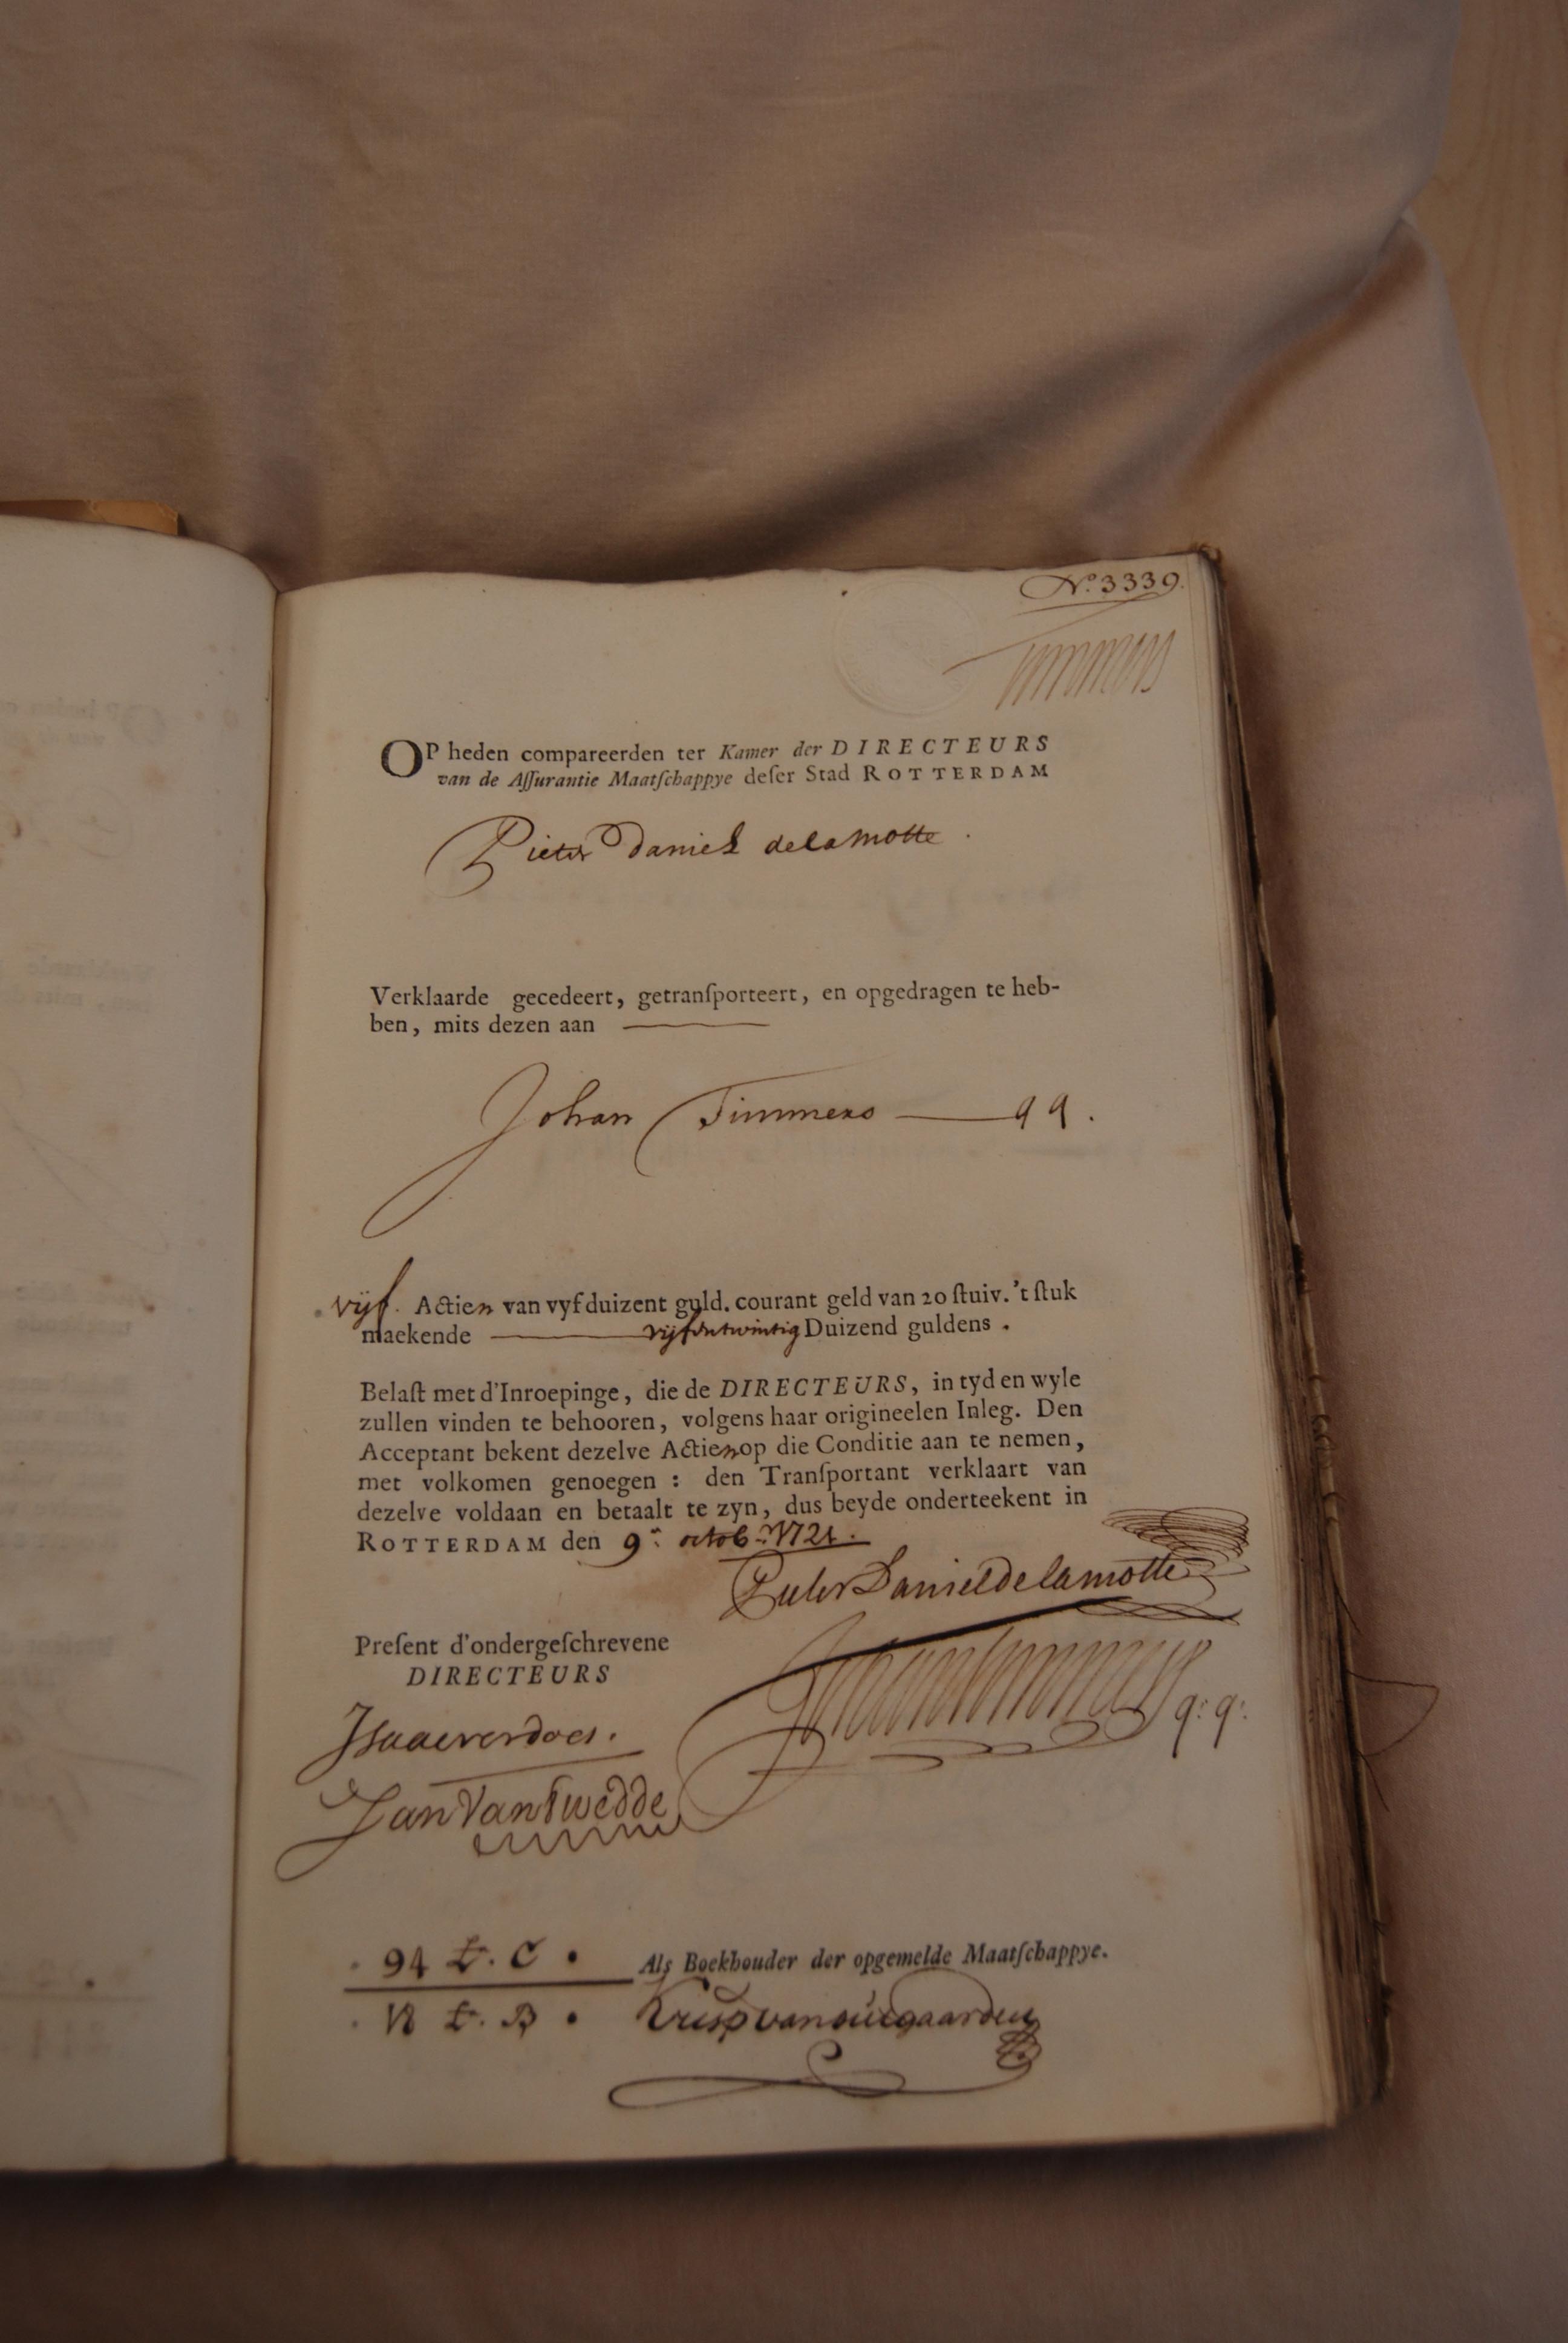 N.º 3339.
Timmers
OP heden compareerden ter Kamer der DIRECTEURS
van de Aſſurantie Maatſchappye deſer Stad ROTTERDAM
Pieter Daniel delamotte
Verklaarde gecedeert, getranſporteert, en opgedragen te heb-
ben, mits dezen aan
Johan Timmers — qq.
vijf. Actien van vyf duizent guld. courant geld van 20 ſtuiv. 't ſtuk
maekende — vijfentwintig Duizend guldens.
Belaſt met d'Inroepinge, die de DIRECTEURS, in tyd en wyle
zullen vinden te behooren, volgens haar origineelen Inleg. Den
Acceptant bekent dezelve Actien op die Conditie aan te nemen,
met volkomen genoegen : den Tranſportant verklaart van
dezelve voldaan en betaalt te zyn, dus beyde onderteekent in
ROTTERDAM den 9: octob: 1721.
Pieter Daniel de lamotte
Preſent d'ondergeſchrevene
DIRECTEURS
Johan Timmers q: q:
Isaac verdoes.
Jan Van Twedde
94 L. C Als Boekhouder der opgemelde Maatſchappye.
L. B